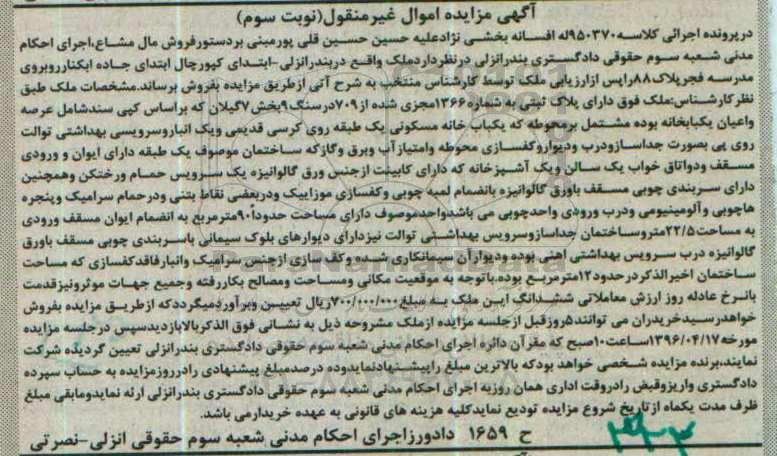 آگهی مزایده اموال غیرمنقول(نوبت سوم)
درپرونده اجرائی کلاسه۹۵۰۳۷۰له افسانه بخشی نژادعلیه حسین حسین قلی پورمبنی بردستورفروش مال مشاع،اجرای احکام
مدنی شعبه سوم حقوقی دادگستری بندرانزلی درنظرداردملک واقع دربندرانزلی-ابتدای کپورچال ابتدای جاده ابکنارروبروی
مدرسه فجرپلاک۸۸راپس ازارزیابی ملک توسط کارشناس منتخب به شرح آتی ازطریق مزایده بفروش برساند.مشخصات ملک طبق
نظرکارشناس:ملک فوق دارای پلاک ثبتی به شماره۱۳۶۶مجزی شده از۷۰۹درسنگ۹بخش۷گیلان که براساس کپی سندشامل عرصه
واعیان یکبابخانه بوده مشتمل برمحوطه که یکباب خانه مسکونی یک طبقه روی کرسی قدیمی ویک انباروسرویسی بهداشتی توالت
روی پی بصورت جداسازودرب ودیواروکفسازی محوطه وامتیازآب وبرق وگازکه ساختمان موصوف یک طبقه دارای ایوان و ورودی
مسقف ودواتاق خواب یک سالن ویک آشپزخانه که دارای کابینت ازجنس ورق گالوانیزه یک سرویس حمام ورختکن وهمچنین
دارای سربندی چوبی مسقف باورق گالوانیزه بانضمام لمبه چوبی وکفسازی موزاییک ودربعضی نقاط بتنی ودرحمام سرامیک وپنجره
هاچوبی وآلومینیومی ودرب ورودی واحدچوبی می باشدواحدموصوف دارای مساحت حدودا۹۰مترمربع به انضمام ایوان مسقف ورودی
به مساحت۲۲/۵متروساختمان جداسازوسرویس بهداشتی توالت نیزدارای دیوارهای بلوک سیمانی باسربندی چوبی مسقف باورق
گالوانیزه درب سرویس بهداشتی اهنی بوده ودیوارآن سیمانکاری شده وکف سازی ازجنس سرامیک وانبارفاقدکفسازی که مساحت
ساختمان اخیرالذکردرحدود۱۲مترمربع بوده.باتوجه به موقعیت مکانی ومساحت ومصالح بکاررفته وجمیع جهات موثرونیزقدمت
بانرخ عادله روز ارزش معاملاتی ششدانگ این ملک به مبلغ۷۰۰/۰۰۰/۰۰۰ریال تعیین وبرآوردمیگرددکه ازطریق مزایده بفروش
خواهدرسیدخریدران می توانند۵روزقبل ازجلسه مزایده ازملک مشروحه ذیل به نشانی فوق الذکربالابازدیدسپس درجلسه مزایده
مورخه۱۳۹۶/۰۴/۱۷ساعت۱۰صبح که مقرآن دائره اجرای احکام مدنی شعبه سوم حقوقی دادگستری بندرانزلی تعیین گردیده شرکت
نمایند،برنده مزایده شخصی خواهد بودکه بالاترین مبلغ راپیشنهادنمایدوده درصدمبلغ پیشنهادی رادرروزمزایده به حساب سپرده
دادگستری واریزوقبض رادروقت اداری همان روزبه اجرای احکام مدنی شعبه سوم حقوقی دادگستری بندرانزلی ارئه نمایدومابقی مبلغ
ظرف مدت یکماه ازتاریخ شروع مزایده تودیع نمایدکلیه هزینه های قانونی به عهده خریدارمی باشد.
ح ۱۶۵۹ دادورزاجرای احکام مدنی شعبه سوم حقوقی انزلی-نصرتی